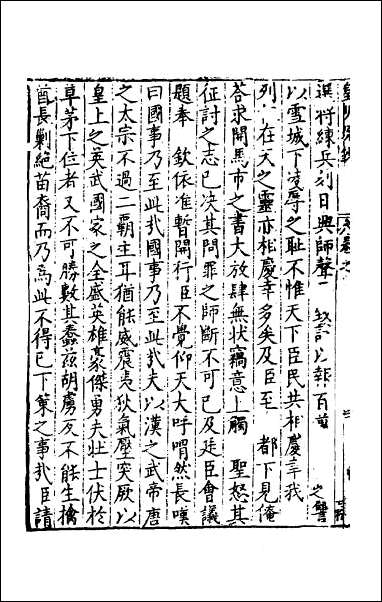 選將練兵刻日興師聲致討以報百萬之讐
以雪城下凌辱之耻不惟天下臣民共相慶幸我
列在天之靈亦相慶幸多矣及臣至 都下見俺
荅求開馬市之書大放肆無狀竊意上觸 聖怒其
征討之志已决其問罪之師斷不可已及廷臣會議
題奉 欽依准暫開行臣不覺仰天大呼喟然長嘆
曰國事乃至此哉國事乃至此哉夫以漢之武帝唐
之太宗不過二霸主耳猶能威震夷狄氣壓突厥以
皇上之英武國家之全盛英雄豪傑勇夫壯士伏於
草茅下位者又不可勝數其蠢茲胡虜反不能生擒
酋長剿絕苗裔而乃爲此不得已下策之事哉臣請